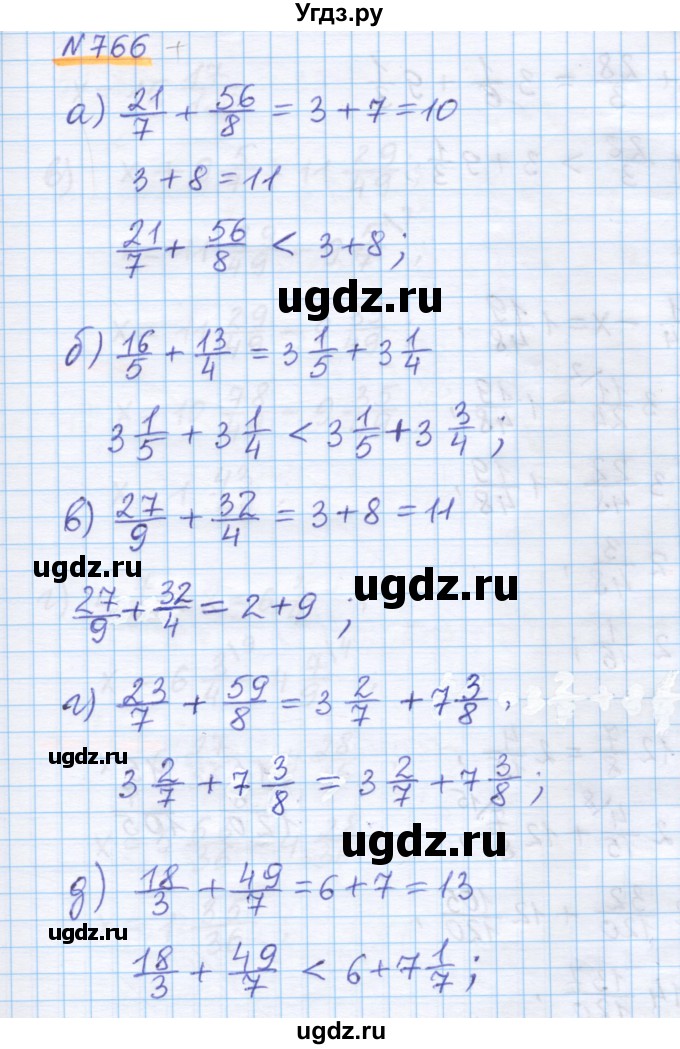 Угдз.ру
№766
а) 21/7 + 56/8 = 3 + 7 = 10
3 + 8 = 11
21/7 + 56/8 < 3 + 8;
ugdz.ru
б) 16/5 + 13/4 = 3 1/5 + 3 1/4
3 1/5 + 3 1/4 < 3 1/5 + 3 3/4;
в) 27/9 + 32/4 = 3 + 8 = 11
ugdz.ru
ugdz.ru
27/9 + 32/4 = 2 + 9;
г) 23/7 + 59/8 = 3 2/7 + 7 3/8,
ugdz.ru
3 2/7 + 7 3/8 = 3 2/7 + 7 3/8;
ugdz.ru
д) 18/3 + 49/7 = 6 + 7 = 13
ugdz.ru
18/3 + 49/7 < 6 + 7 1/7;
ugdz.ru